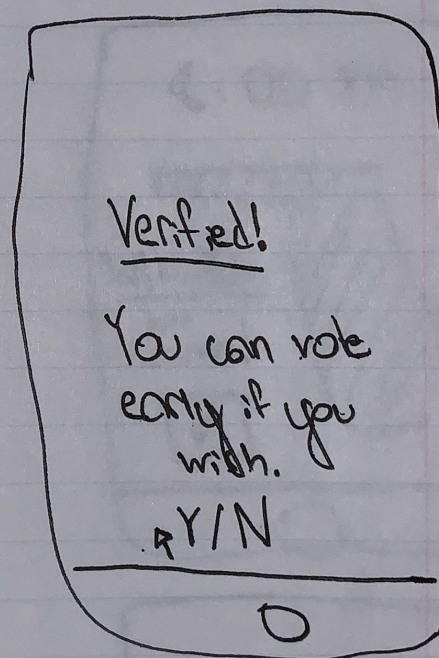 Verified!
You can vote
early if you
wish.
Y/N